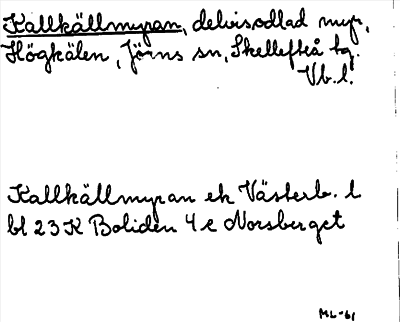 Kallkällmyran, delvis odlad myr,
Högkälen, Jörns sn, Skellefteå tg.
Vb. l.
Kallkällmyran ek Västerb. l
bl 23 K Boliden 4 e Norsberget
ML-61